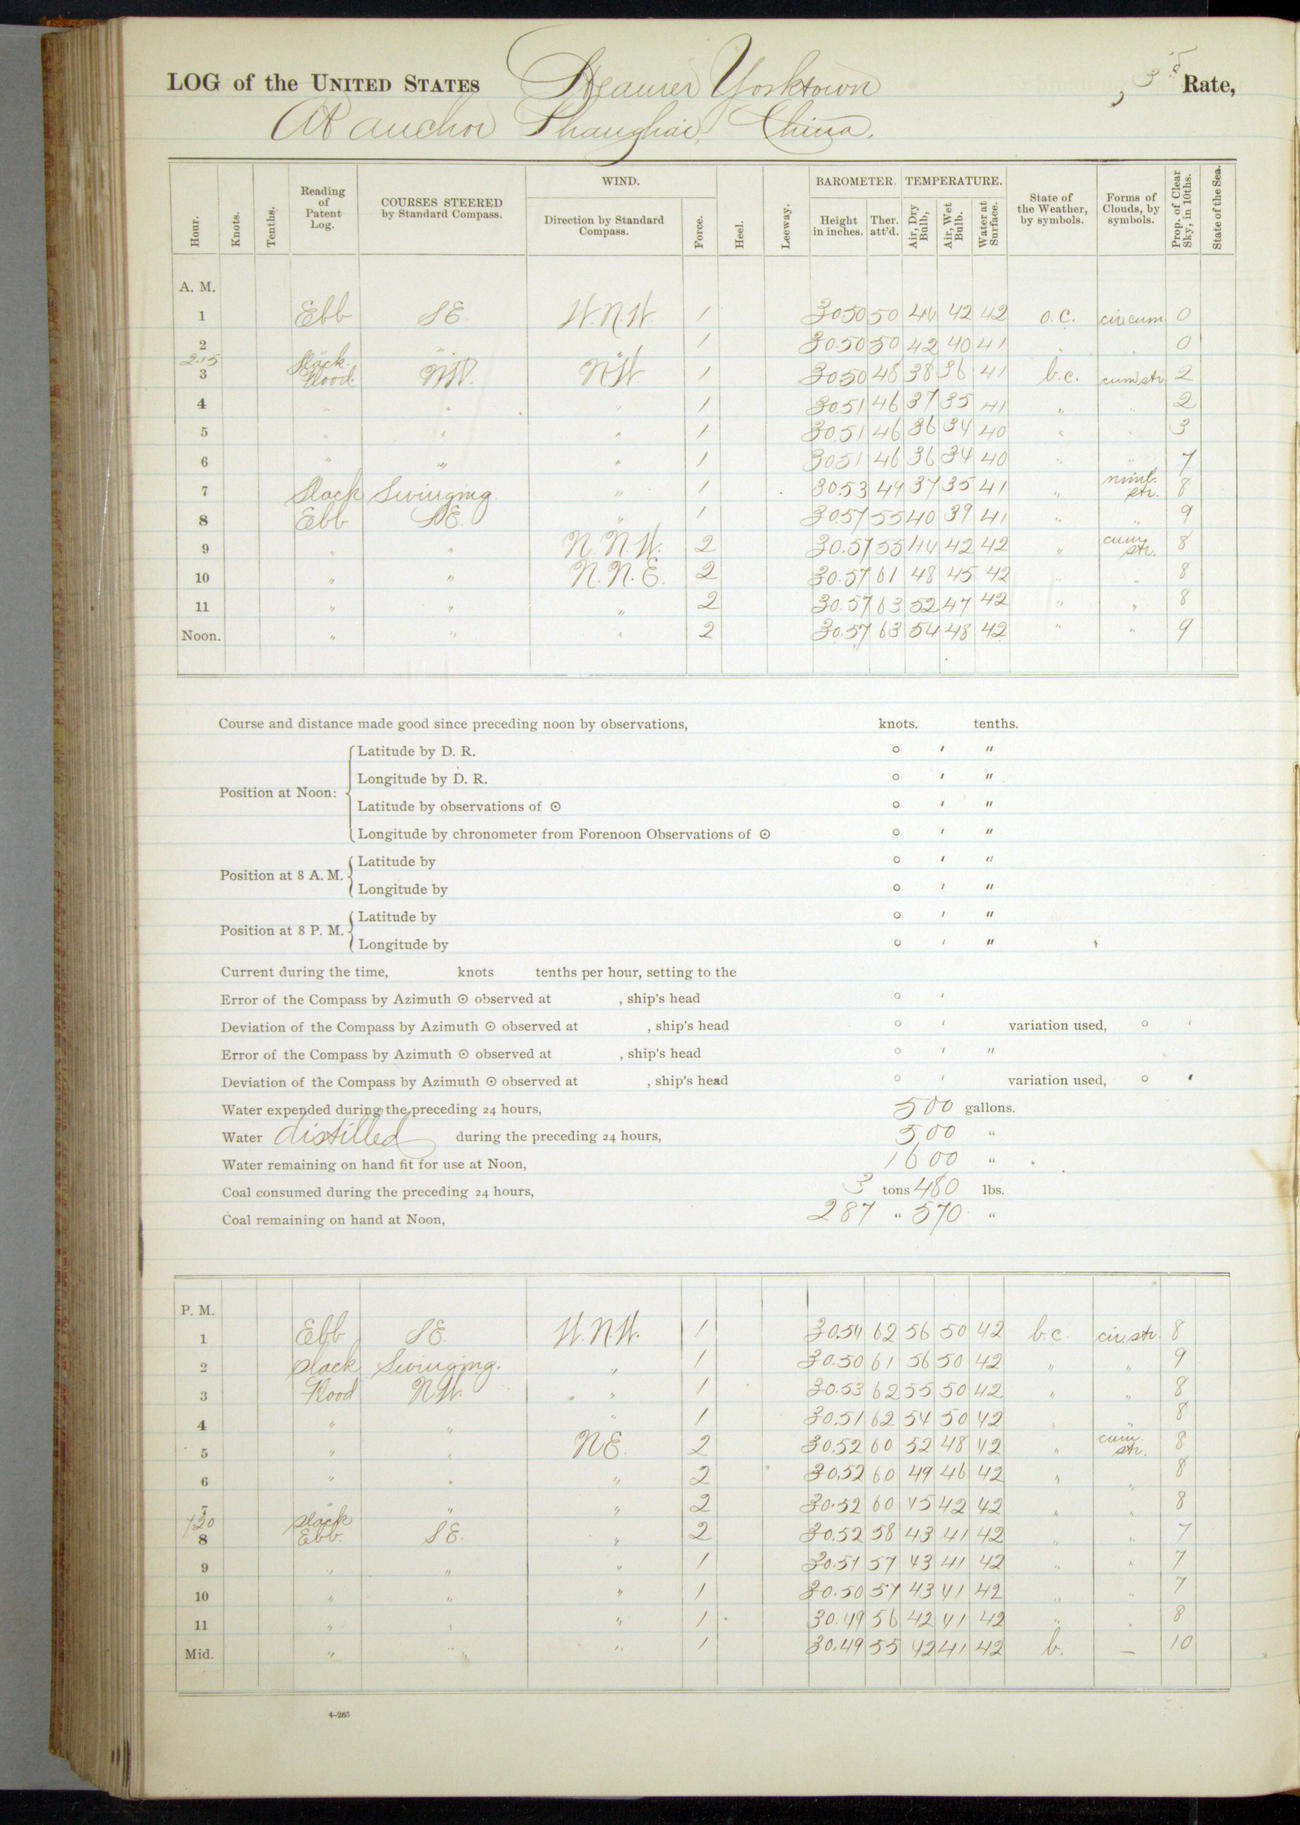 LOG of the UNITED STATES Steamer Yorktown , 3rd Rate,
At anchor Shanghai, China.
Hour. Knots. Tenths. Reading of Patent Log. COURSES STEERED by Standard Compass. WIND. Direction by Standard Compass. Force. Heel. Leeway. BAROMETER. Height in inches. Ther. att'd. TEMPERATURE. Air, Dry Bulb, Air, Wet Bulb. Water at Surface. State of the Weather, by symbols. Forms of Clouds, by symbols. Prop. of Clear Sky, in 10ths. State of the Sea.
A. M.
1 Ebb SE. W.N.W. 1 30.50 50 44 42 42 o.c. cir.cum. 0
2 " " 1 30.50 50 42 40 41 " " 0
2.15 Slack
3 Flood. NW. NW. 1 30.50 48 38 36 41 b.c. cum.str. 2
4 " " " 1 30.51 46 37 35 41 " " 2
5 " " " 1 30.51 46 36 34 40 " " 3
6 " " " 1 30.51 46 36 34 40 " " 7
7 Slack Swinging. " 1 30.53 49 37 35 41 " nimb. str. 8
8 Ebb SE. " 1 30.57 55 40 39 41 " " 9
9 " " N.N.W. 2 30.57 55 44 42 42 " cum. str. 8
10 " " N.N.E. 2 30.57 61 48 45 42 " " 8
11 " " " 2 30.57 63 52 47 42 " " 8
Noon. " " " 2 30.57 63 54 48 42 " " 9
Course and distance made good since preceding noon by observations, knots. tenths.
Position at Noon:
Latitude by D. R. ° ′ ″
Longitude by D. R. ° ′ ″
Latitude by observations of ⊙ ° ′ ″
Longitude by chronometer from Forenoon Observations of ⊙ ° ′ ″
Position at 8 A. M.
Latitude by ° ′ ″
Longitude by ° ′ ″
Position at 8 P. M.
Latitude by ° ′ ″
Longitude by ° ′ ″
Current during the time, knots tenths per hour, setting to the
Error of the Compass by Azimuth ⊙ observed at , ship's head ° ′
Deviation of the Compass by Azimuth ⊙ observed at , ship's head ° ′ variation used, ° ′
Error of the Compass by Azimuth ⊙ observed at , ship's head ° ′ ″
Deviation of the Compass by Azimuth ⊙ observed at , ship's head ° ′ variation used, ° ′
Water expended during the preceding 24 hours, 500 gallons.
Water distilled during the preceding 24 hours, 500 "
Water remaining on hand fit for use at Noon, 1600 "
Coal consumed during the preceding 24 hours, 3 tons 480 lbs.
Coal remaining on hand at Noon, 287 " 570 "
P. M.
1 Ebb SE. W.N.W. 1 30.54 62 56 50 42 b.c. cir.str. 8
2 Slack Swinging. " 1 30.50 61 56 50 42 " " 9
3 Flood NW. " 1 30.53 62 55 50 42 " " 8
4 " " " 1 30.51 62 54 50 42 " " 8
5 " " NE. 2 30.52 60 52 48 42 " cum. str. 8
6 " " " 2 30.52 60 49 46 42 " " 8
7 " " " 2 30.52 60 45 42 42 " " 8
Slack
8 Ebb. SE. " 2 30.52 58 43 41 42 " " 7
9 " " " 1 30.51 57 43 41 42 " " 7
10 " " " 1 30.50 57 43 41 42 " " 7
11 " " " 1 30.49 56 42 41 42 " " 8
Mid. " " " 1 30.49 55 42 41 42 b. — 10
4—265